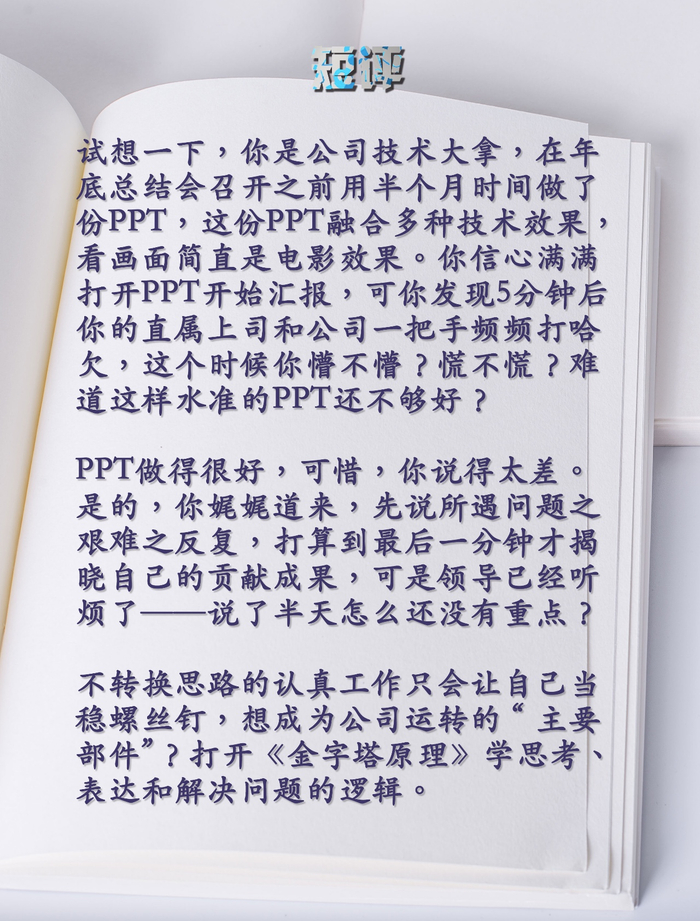 短评
试想一下，你是公司技术大拿，在年
底总结会召开之前用半个月时间做了
份PPT，这份PPT融合多种技术效果，
看画面简直是电影效果。你信心满满
打开PPT开始汇报，可你发现5分钟后
你的直属上司和公司一把手频频打哈
欠，这个时候你懵不懵？慌不慌？难
道这样水准的PPT还不够好？
PPT做得很好，可惜，你说得太差。
是的，你娓娓道来，先说所遇问题之
艰难之反复，打算到最后一分钟才揭
晓自己的贡献成果，可是领导已经听
烦了——说了半天怎么还没有重点？
不转换思路的认真工作只会让自己当
稳螺丝钉，想成为公司运转的“主要
部件”？打开《金字塔原理》学思考、
表达和解决问题的逻辑。